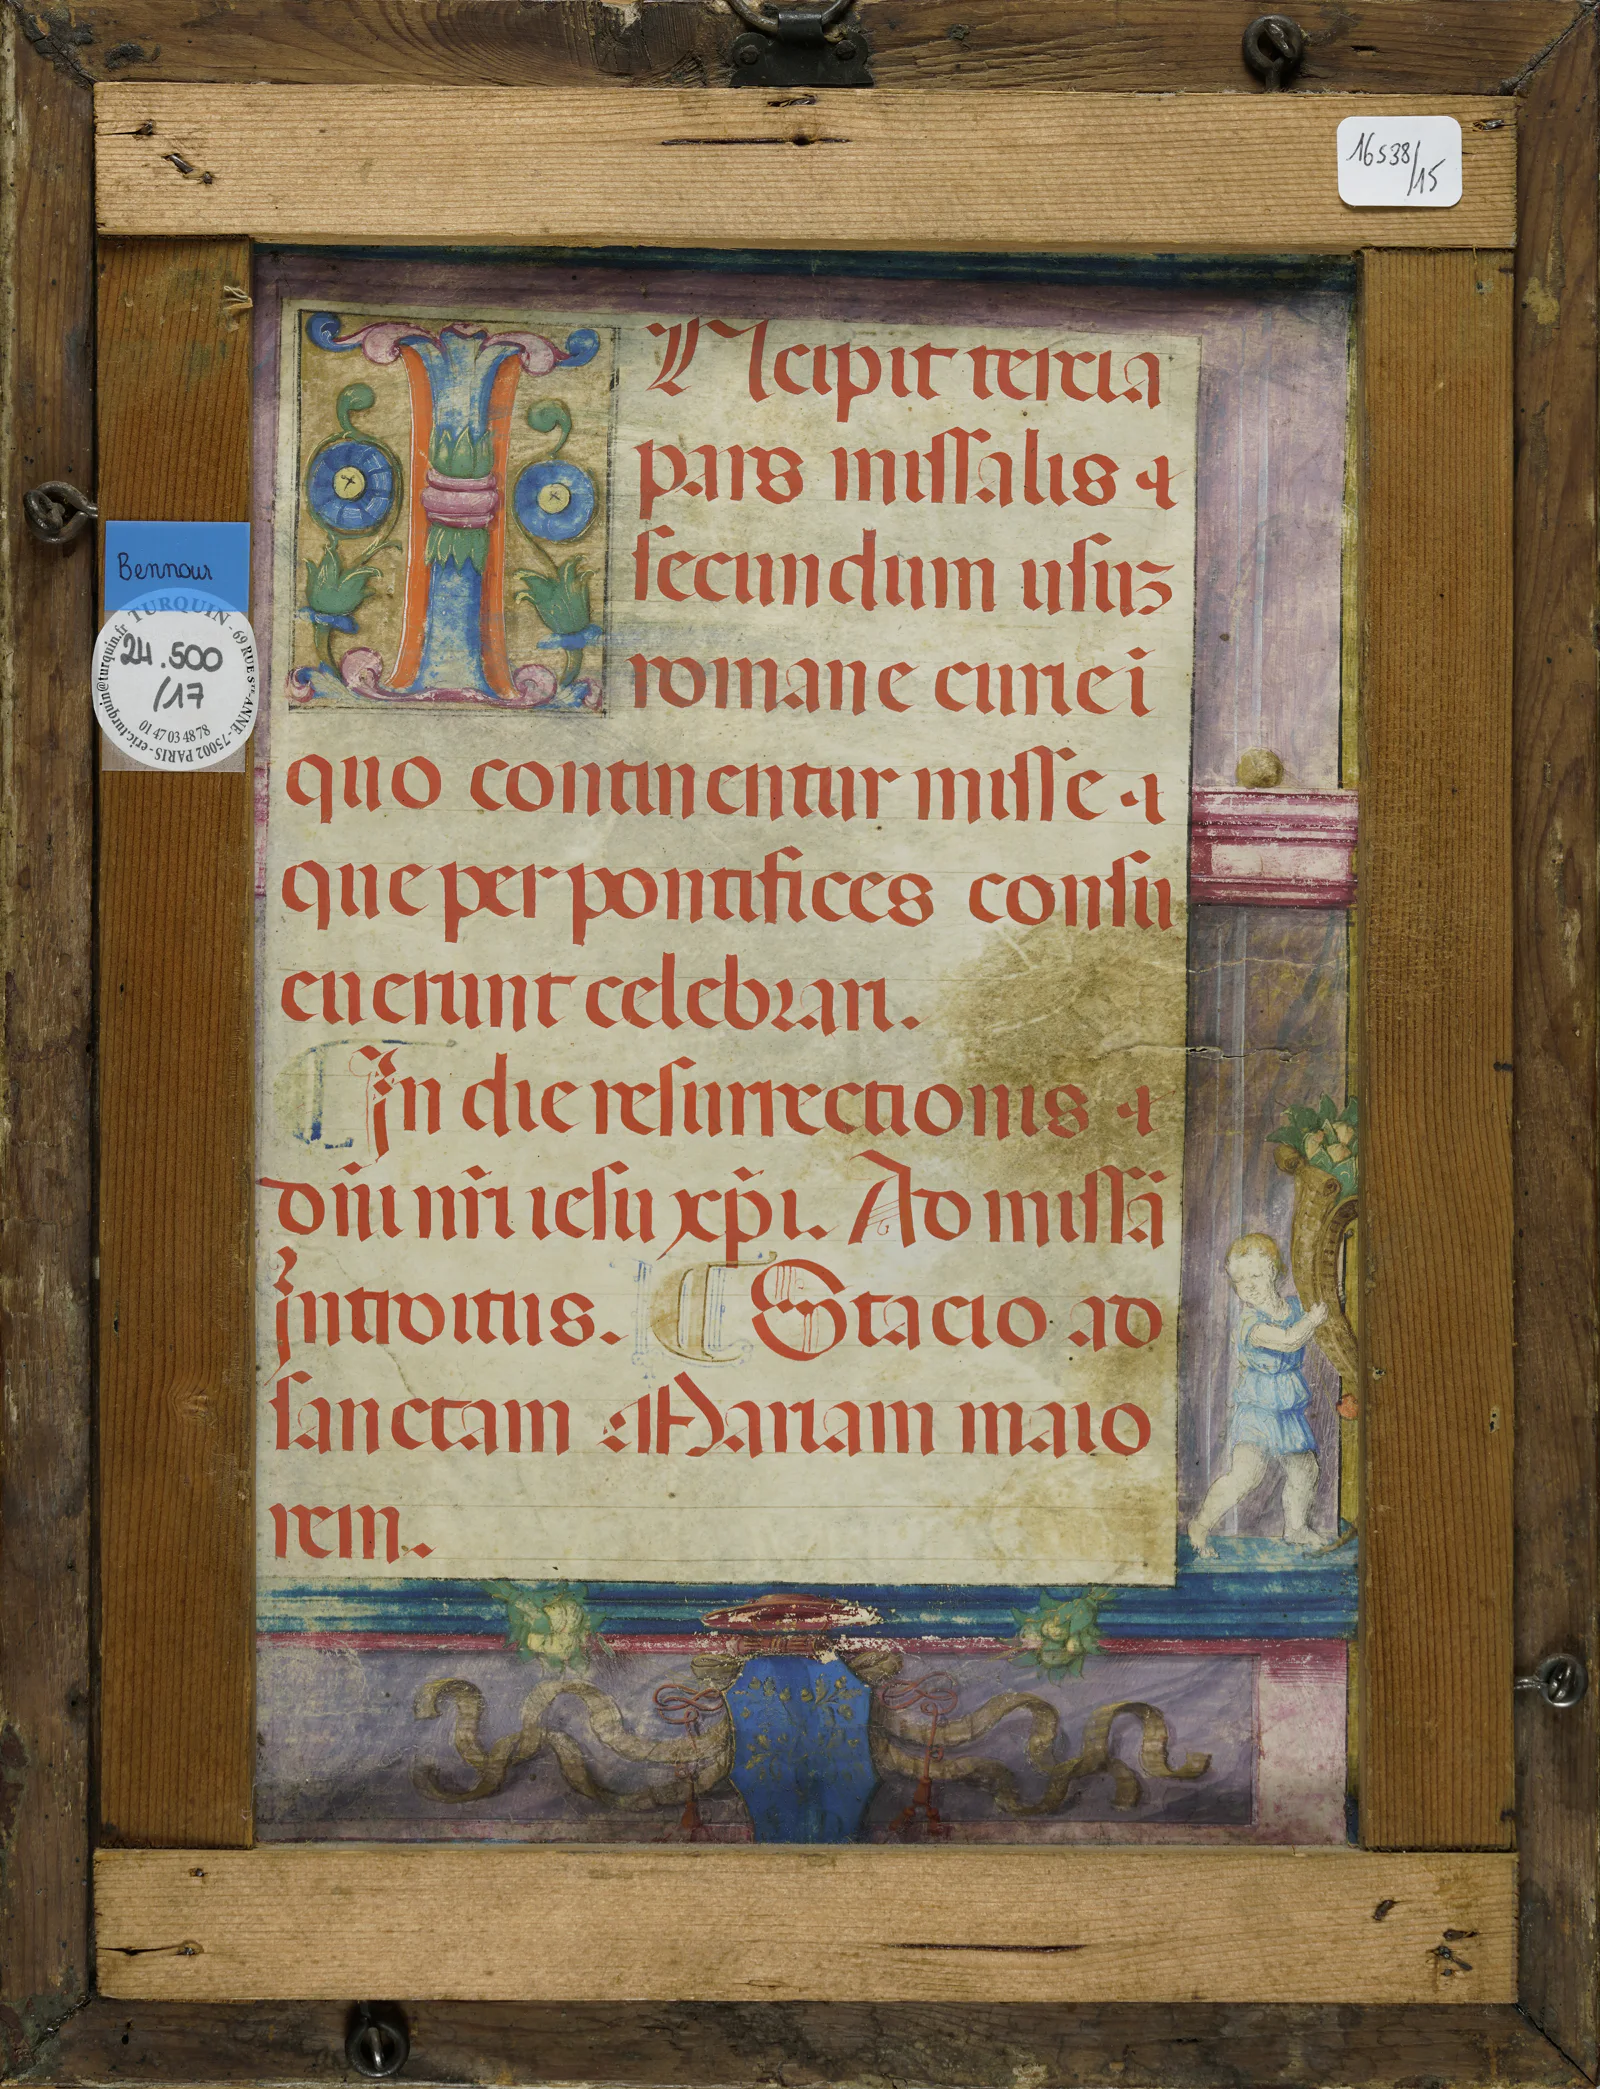 16538/15
INcipit tercia
pars missalis
secundum usuʒ
romane curie i
quo continentur misse
que per pontifices consu
euerunt celebrari.
In die resurrectionis
dñi nr̃i iesu xp̃i. Ad missã
introitus. Stacio ad
sanctam Mariam maio
rem.
Bennour
TURQUIN - 69 RUE Ste ANNE - 75002 PARIS - eric.turquin@turquin.fr
24.500
/17
01 47 03 48 78